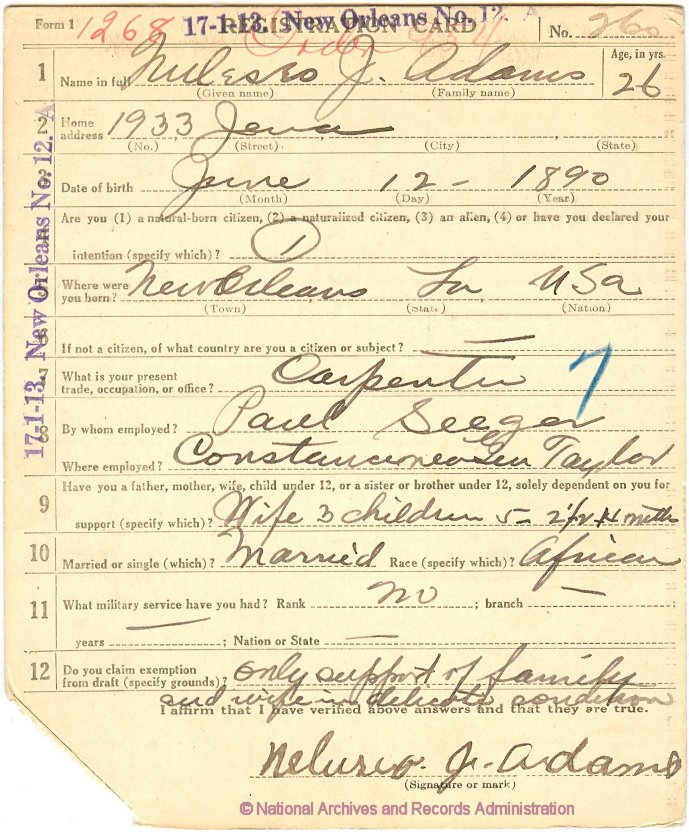 17-1-13. New Orleans No. 12. A
Form 1 1268 REGISTRATION CARD No. 260
1 Name in full J. Adams Age, in yrs.
(Given name) (Family name) 26
2 Home address 1933 Jena
(No.) (Street) (City) (State)
Date of birth June 12 - 1890
(Month) (Day) (Year)
Are you (1) a natural-born citizen, (2) a naturalized citizen, (3) an alien, (4) or have you declared your
intention (specify which)? 1
Where were you born? New Orleans La USA
(Town) (State) (Nation)
If not a citizen, of what country are you a citizen or subject? —
What is your present trade, occupation, or office? Carpenter 7
By whom employed? Paul Seeger
Where employed? Taylor
9 Have you a father, mother, wife, child under 12, or a sister or brother under 12, solely dependent on you for
support (specify which)? Wife 3 children 5 -
10 Married or single (which)? Married Race (specify which)? African
11 What military service have you had? Rank no ; branch —
years — ; Nation or State —
12 Do you claim exemption from draft (specify grounds)? only support of family
and wife in delicate condition
I affirm that I have verified above answers and that they are true.
J. Adams
(Signature or mark)
17-1-13. New Orleans No. 12. A
© National Archives and Records Administration